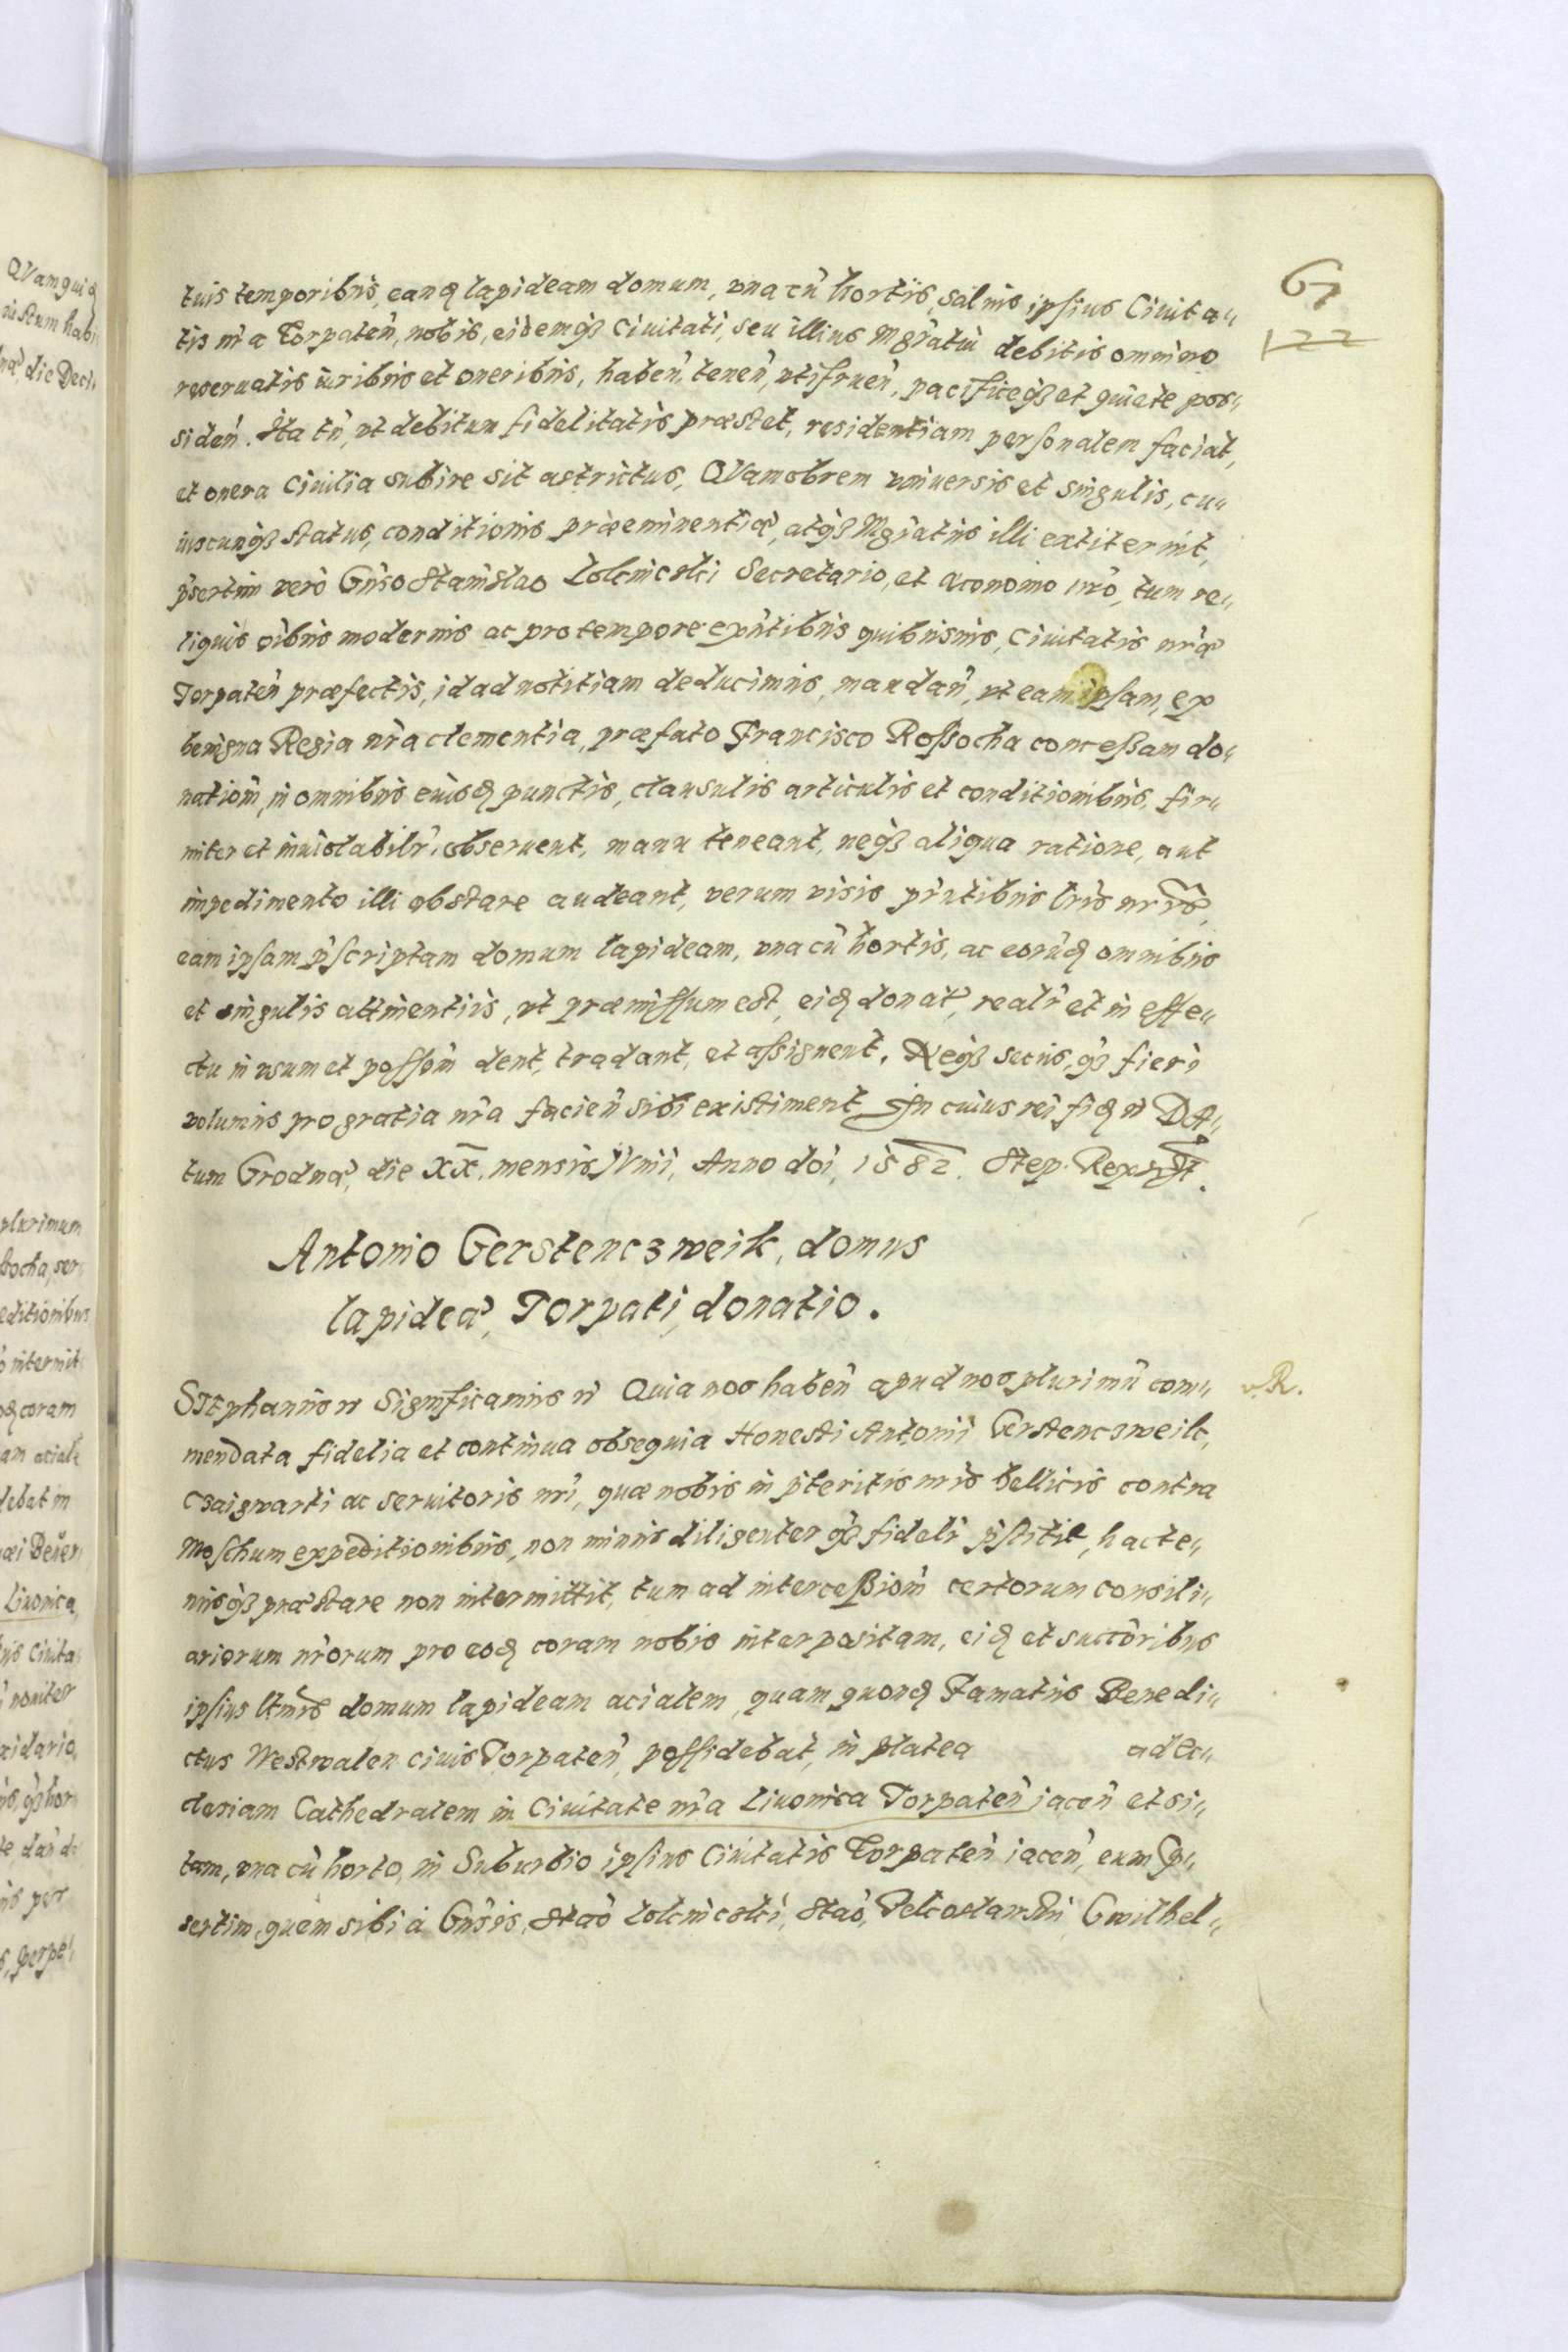 61
122
tuis temporibus, eandem lapideam domum, vna cũ hortis, salvis ipsius Ciuita„
tis nr̃a Torpateñ, nobis, eidemq́3 Ciuitati, seu illius Mgr̃atui debitis omnino
reseruatis iuribus et oneribus, habeñ, teneñ, vtifrueñ, pacificeq́3 et quiete pos„
sideñ. Ita tñ, vt debitum fidelitatis præstet, residentiam personalem faciat,
et onera Ciuilia subire sit astrictus, QVamobrem vniuersis et singulis, cu„
iuscunq́3 status, conditionis præeminentiæ, atq́3 Mgr̃atus illi extiterint,
p̃sertim vero Gñso Stanislao Lolcnicolci Secretario, et Œconomo nrõ, tum re„
liquis oĩbus modernis ac pro tempore exñtibus quibusuis, Ciuitatis nr̃æ
Torpateñ præfectis, id ad notitiam deducimus, mandañ, vt eam ipsam, ex
benigna Regia nr̃a clementia, præfato Francisco Rossocha concessam do„
natioñ, in omnibus eiusdem punctis, clausulis articulis et conditionibus, fir„
miter et inuiolabilr̃, obseruent, manu teneant, neq́3 aliqua ratione, aut
impedimento illi obstare audeant, verum visis pñtibus lr̃is nr̃is,
eam ipsam p̃scriptam domum lapideam, vna cũ hortis, ac eorũdem omnibus
et singulis attinentiis, vt præmissum est, eidem donatæ, realr̃ et in effe„
ctu in vsum et posssioñ dent, tradant, et assignent, Neq́3 secus, q́3 fieri
volumus pro gratia nr̃a facieñ sibi existiment In cuius rei fidem DA„
tum Grodnæ, die XX. mensis IVnii, Anno dñi, 1582. Step. Rex sst.
Antonio Gerstenczweik, domus
lapideæ, Torpati, donatio.
STEphanus Significamus Quia nos habeñ apud nos plurimũ com„
R.
mendata fidelia et continua obsequia Honesti Antonii Gerstenczweik,
Czaigwarti ac seruitoris nr̃i, quæ nobis in p̃teritis nr̃is bellicis contra
Moschum expeditionibus, non minus diligenter q̃3 fidelr̃ p̃stitit, hacte„
nusq́3 præstare non intermittit, tum ad intercessioñ certorum consili„
ariorum nr̃orum pro eodem coram nobis interpositam, eidem et succõribus
ipsius ltm̃is domum lapideam acialem, quam quondam Famatus Benedi„
ctus Westwalen civis Torpateñ, possidebat, in platea ad Ec„
clesiam Cathedralem in Ciuitate nr̃a Liuonica Torpateñ iaceñ et si„
tam, vna cũ horto, in Suburbio ipsius Ciuitatis Torpateñ iaceñ, eum p̃„
sertim, quem sibi à Gñsis, Stañ Lolcnicolci, Stañ, Gwilhel„